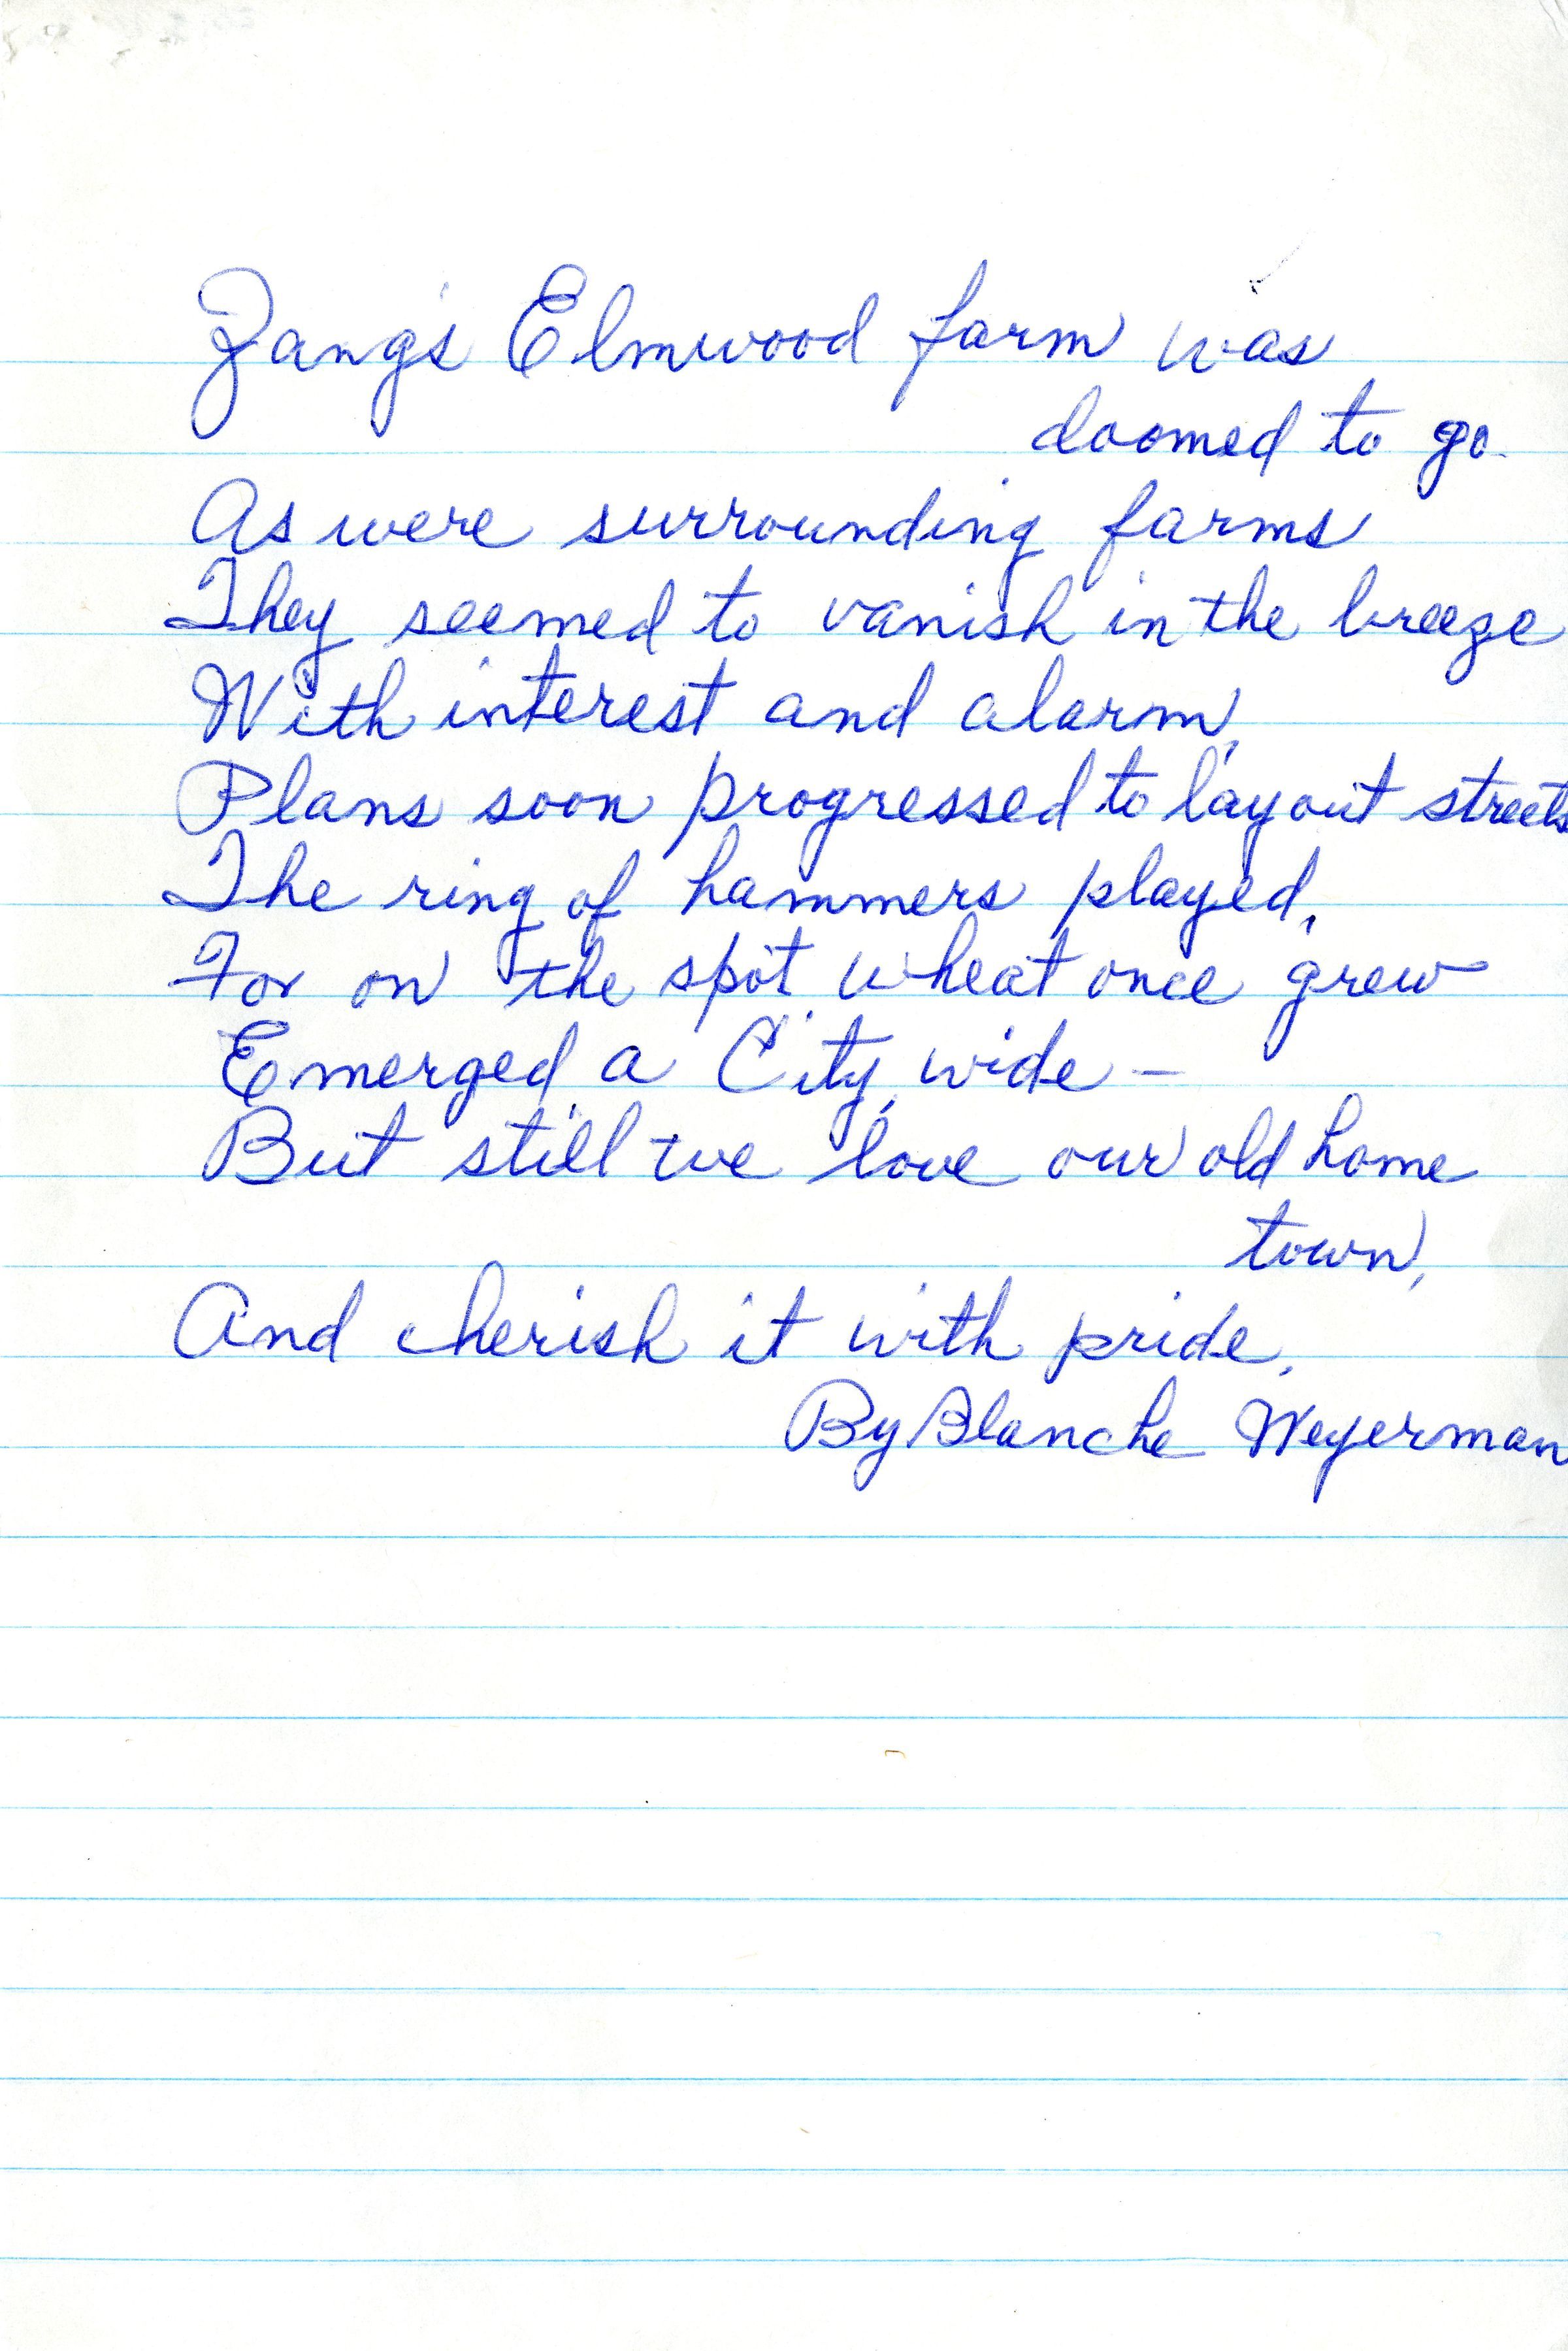 Zang's Elmwood farm was
doomed to go
As were surrounding farms
They seemed to vanish in the breeze
With interest and alarm,
Plans soon progressed to layout streets
The ring of hammers played,
For on the spot wheat once grew
Emerged a City wide –
But still we love our old home
town,
And cherish it with pride.
By Blanche Weyerman